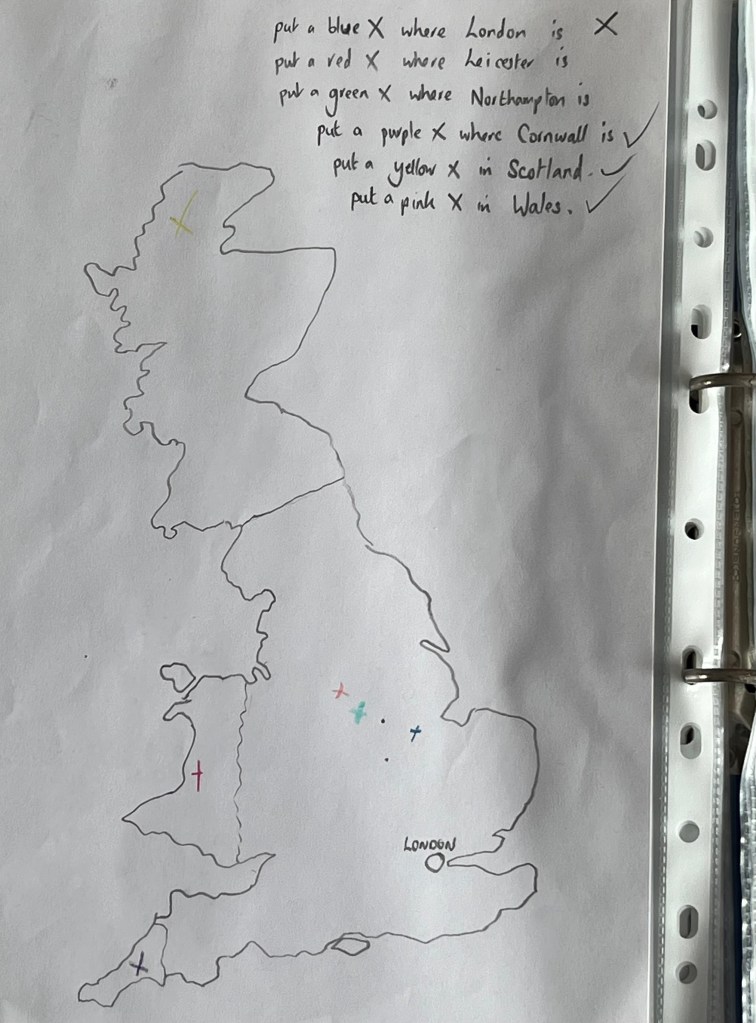 put a blue X where London is X
put a red X where Leicester is
put a green X where Northampton is
put a purple X where Cornwall is ✓
put a yellow X in Scotland. ✓
put a pink X in Wales. ✓
LONDON